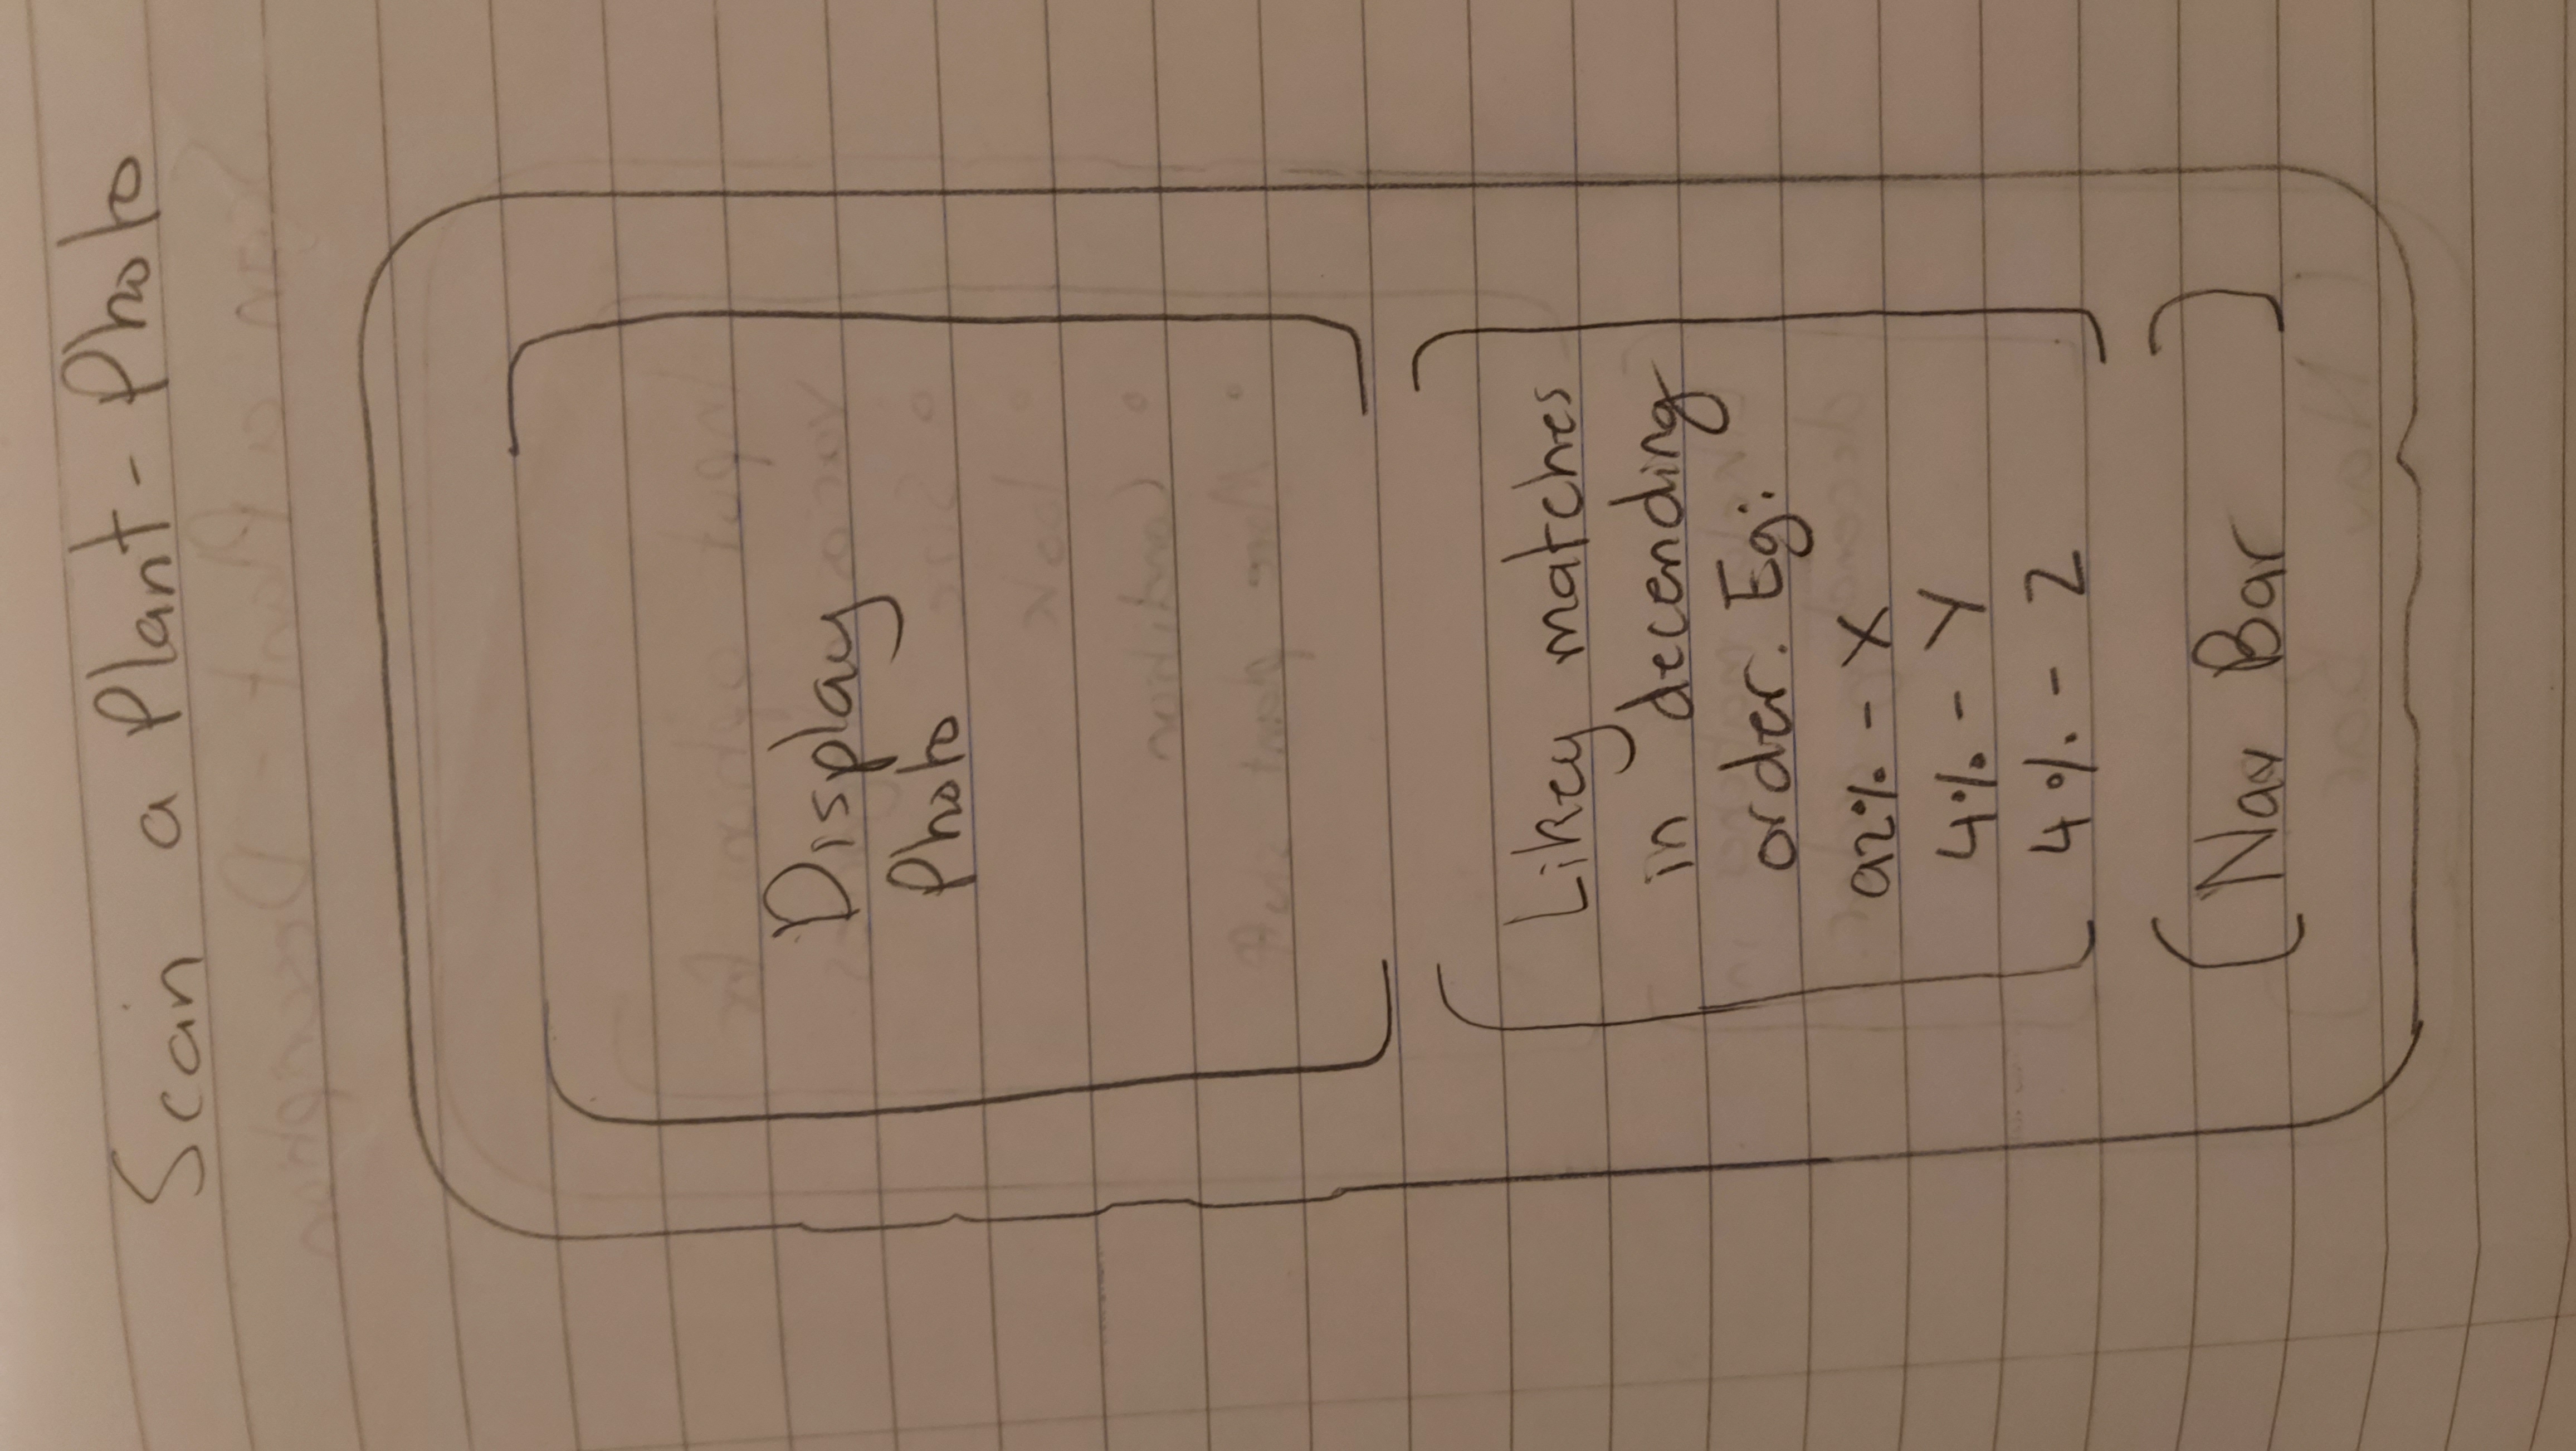 Scan a Plant - Photo
Display
Photo
Likey matches
in decending
order. Eg:
92% - X
4% - Y
4% - Z
Nav Bar